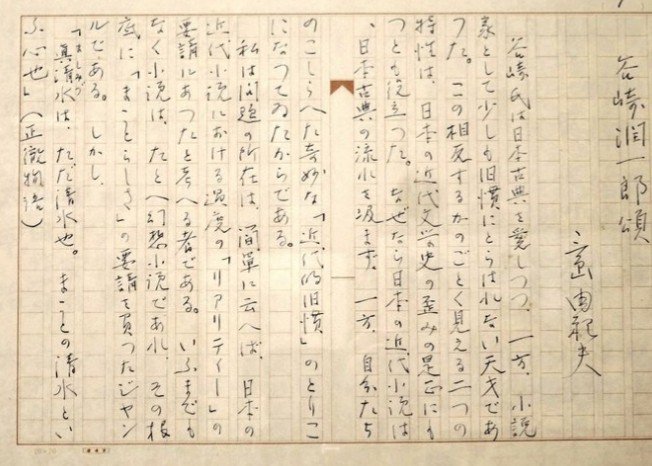 谷崎潤一郎頌
三島由紀夫
谷崎氏は日本古典を愛しつつ、一方、小説
家として少しも旧慣にとらはれない天才であ
つた。この相反するかのごとく見える二つの
特性は、日本の近代文学の史の歪みの是正にも
つとも役立つた。なぜなら日本の近代小説は
、日本古典の流れを汲まず、一方、自分たち
のこしらへた奇妙な「近代的旧慣」のとりこ
になつてゐたからである。
私は問題の所在は、簡単に云へば、日本の
近代小説における過度の「リアリティー」の
要請にあつたと考へる者である。いふまでも
なく小説は、たとへ幻想小説であれ、その根
底に「まことらしさ」の要請を負つたジャン
ルである。しかし、
「真清水は、ただ清水也。まことの清水とい
ふ心也」(正徹物語)